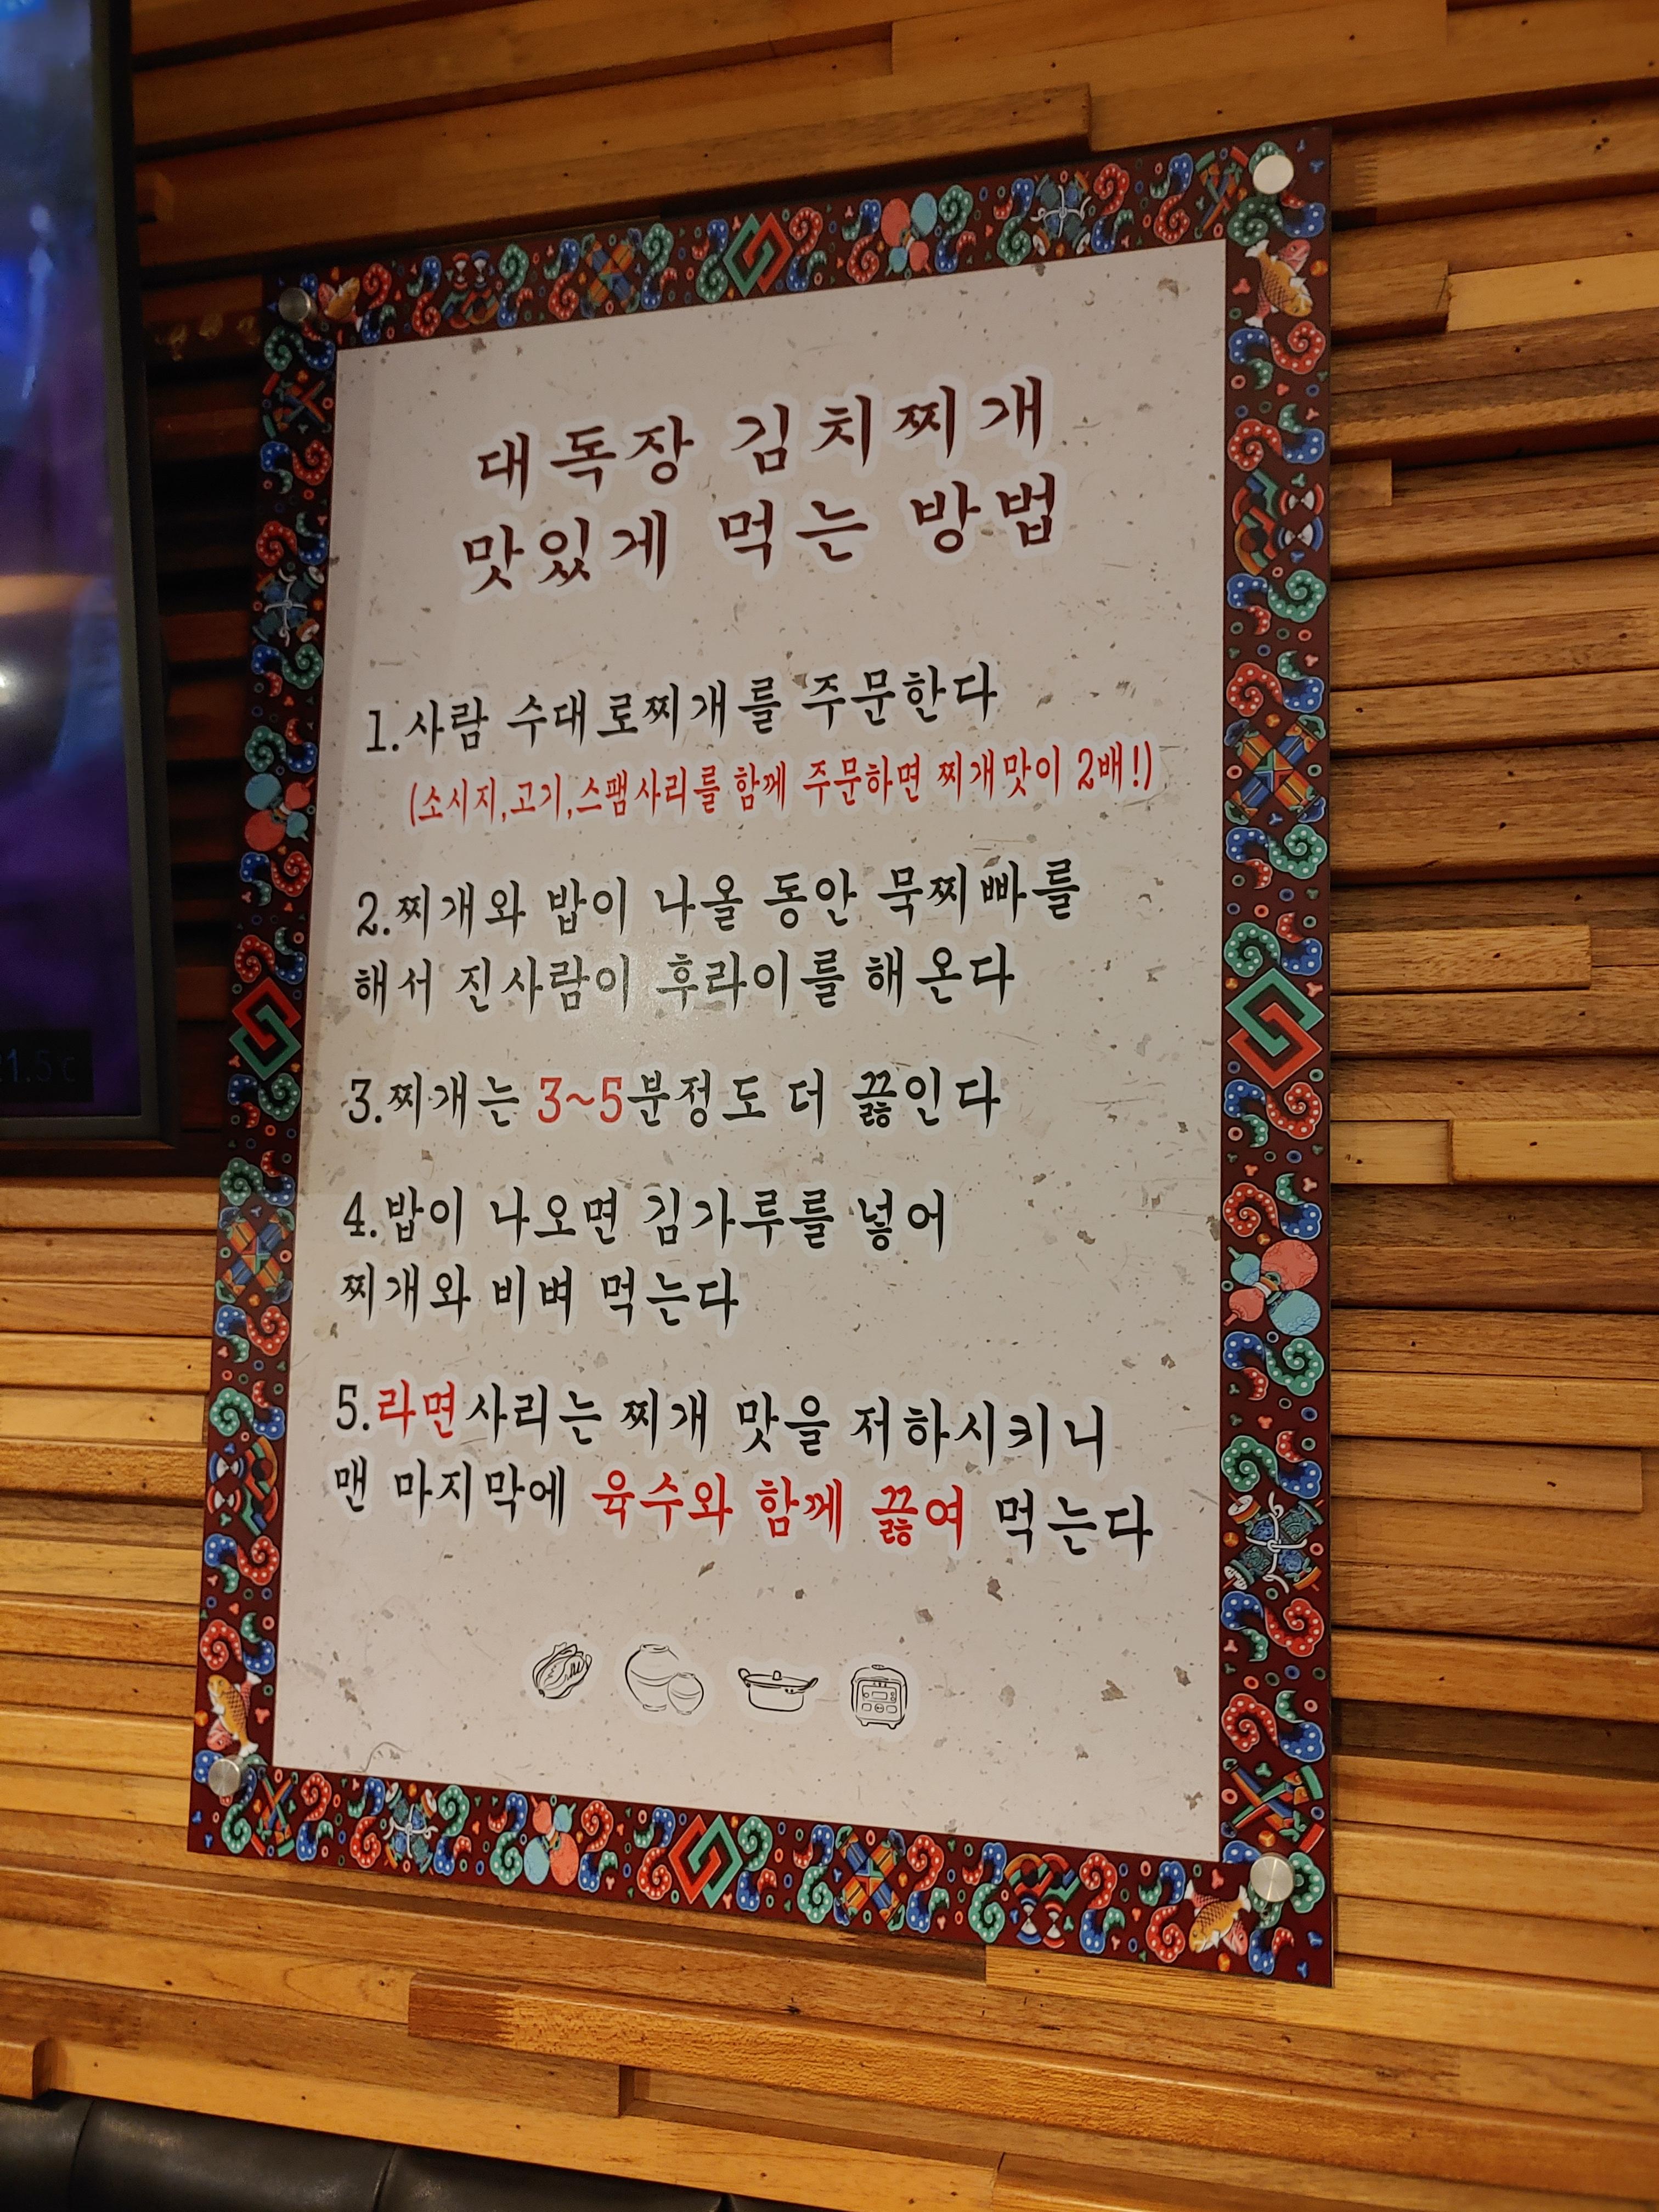 대독장 김치찌개
맛있게 먹는 방법
1.사람 수대로찌개를 주문한다
(소시지,고기,스팸사리를 함께 주문하면 찌개맛이 2배!)
2.찌개와 밥이 나올 동안 묵찌빠를
해서 진사람이 후라이를 해온다
3.찌개는 3~5분정도 더 끓인다
4.밥이 나오면 김가루를 넣어
찌개와 비벼 먹는다
5.라면사리는 찌개 맛을 저하시키니
맨 마지막에 육수와 함께 끓여 먹는다